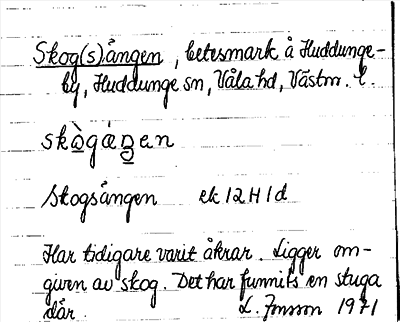 Skog(s)ången, betesmark å Huddunge-
by, Huddunge sn, Våla hd, Västm. l.
skògáŋen
Skogsången ek 12 H 1d
Har tidigare varit åkrar. Ligger om-
given av skog. Det har funnits en stuga
där. L. Jonsson 1971